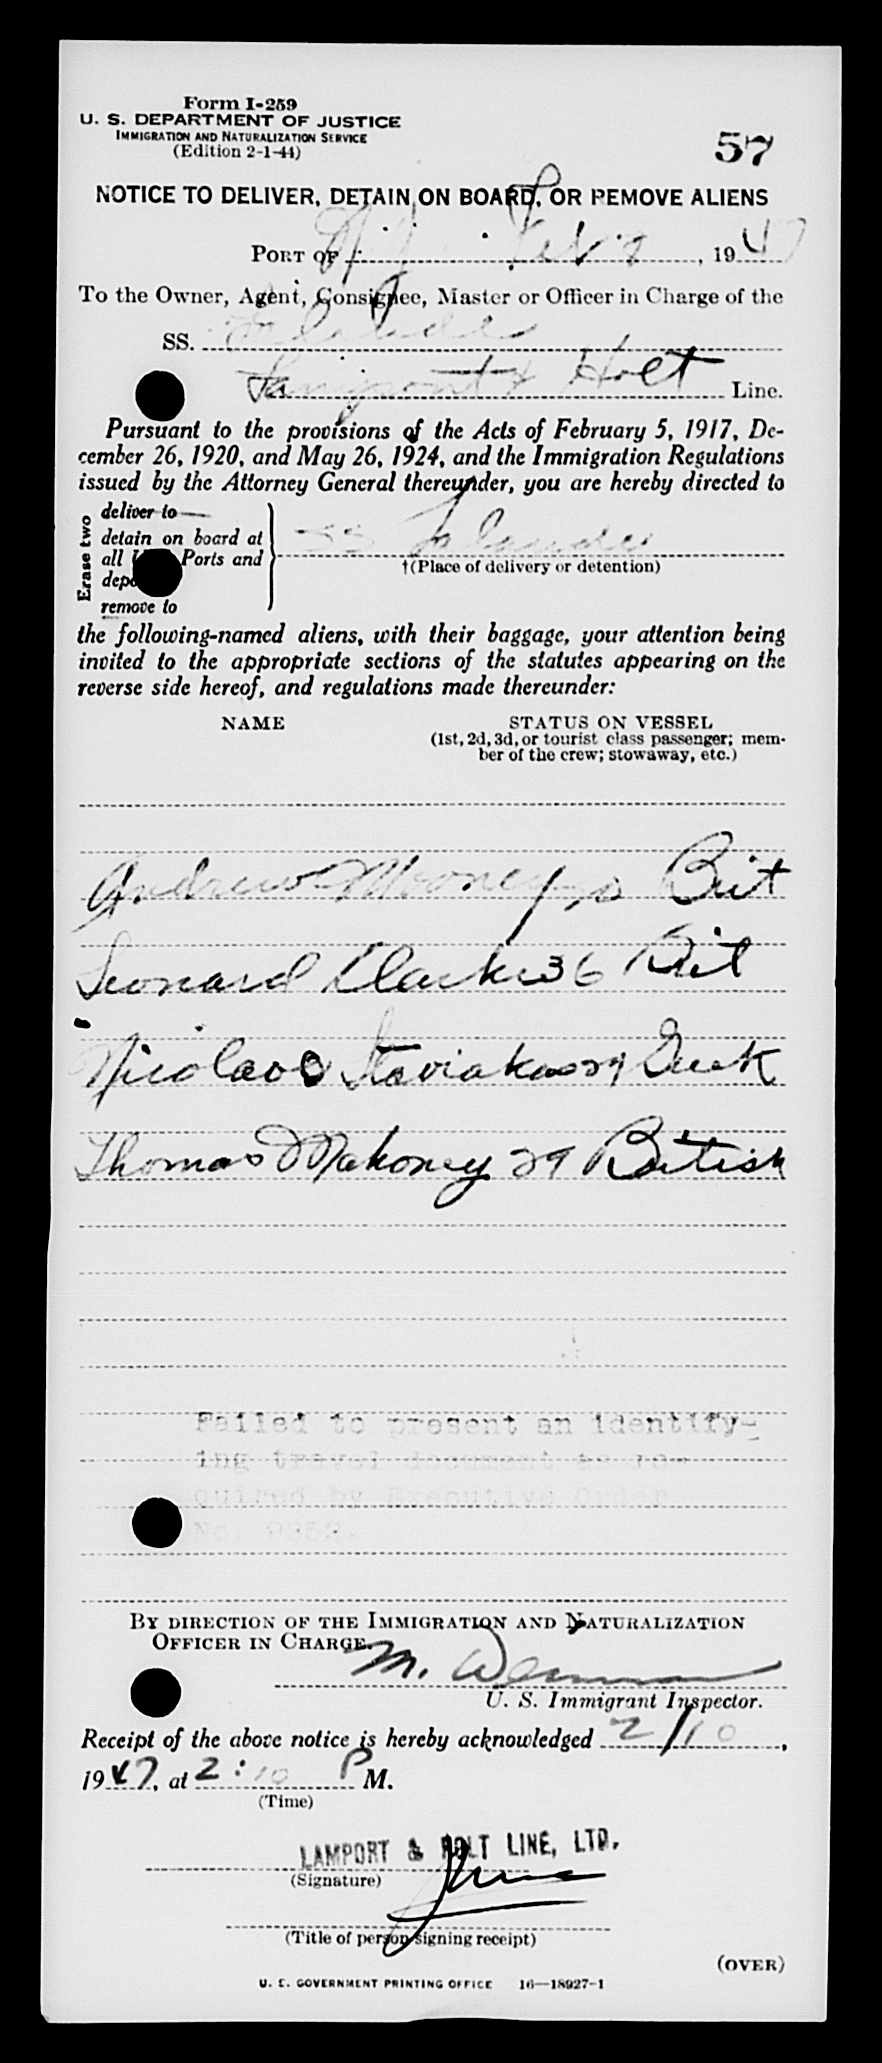 Form I-259
U. S. DEPARTMENT OF JUSTICE
IMMIGRATION AND NATURALIZATION SERVICE
(Edition 2-1-44)
57
NOTICE TO DELIVER, DETAIN ON BOARD, OR REMOVE ALIENS
PORT OF N.Y. Feb 9, 1947
To the Owner, Agent, Consignee, Master or Officer in Charge of the
SS.
Holt Line.
Pursuant to the provisions of the Acts of February 5, 1917, De-
cember 26, 1920, and May 26, 1924, and the Immigration Regulations
issued by the Attorney General thereunder, you are hereby directed to
Erase two
deliver to
detain on board at
all Ports and
remove to
SS
†(Place of delivery or detention)
the following-named aliens, with their baggage, your attention being
invited to the appropriate sections of the statutes appearing on the
reverse side hereof, and regulations made thereunder:
NAME STATUS ON VESSEL
(1st, 2d, 3d, or tourist class passenger; mem-
ber of the crew; stowaway, etc.)
Andrew Mooney Brit
Leonard Clarke 36 Brit
Nicolaos Staviakos 29 Greek
Thomas Mahoney 29 British
Failed to present an identify-
ing travel document as re-
quired by Executive Order
No. 9352.
BY DIRECTION OF THE IMMIGRATION AND NATURALIZATION
OFFICER IN CHARGE.
M.
U. S. Immigrant Inspector.
Receipt of the above notice is hereby acknowledged 2/10,
1947, at 2:10 P M.
(Time)
LAMPORT & HOLT LINE, LTD.
(Signature)
(Title of person signing receipt)
(OVER)
U. S. GOVERNMENT PRINTING OFFICE 16—18927-1